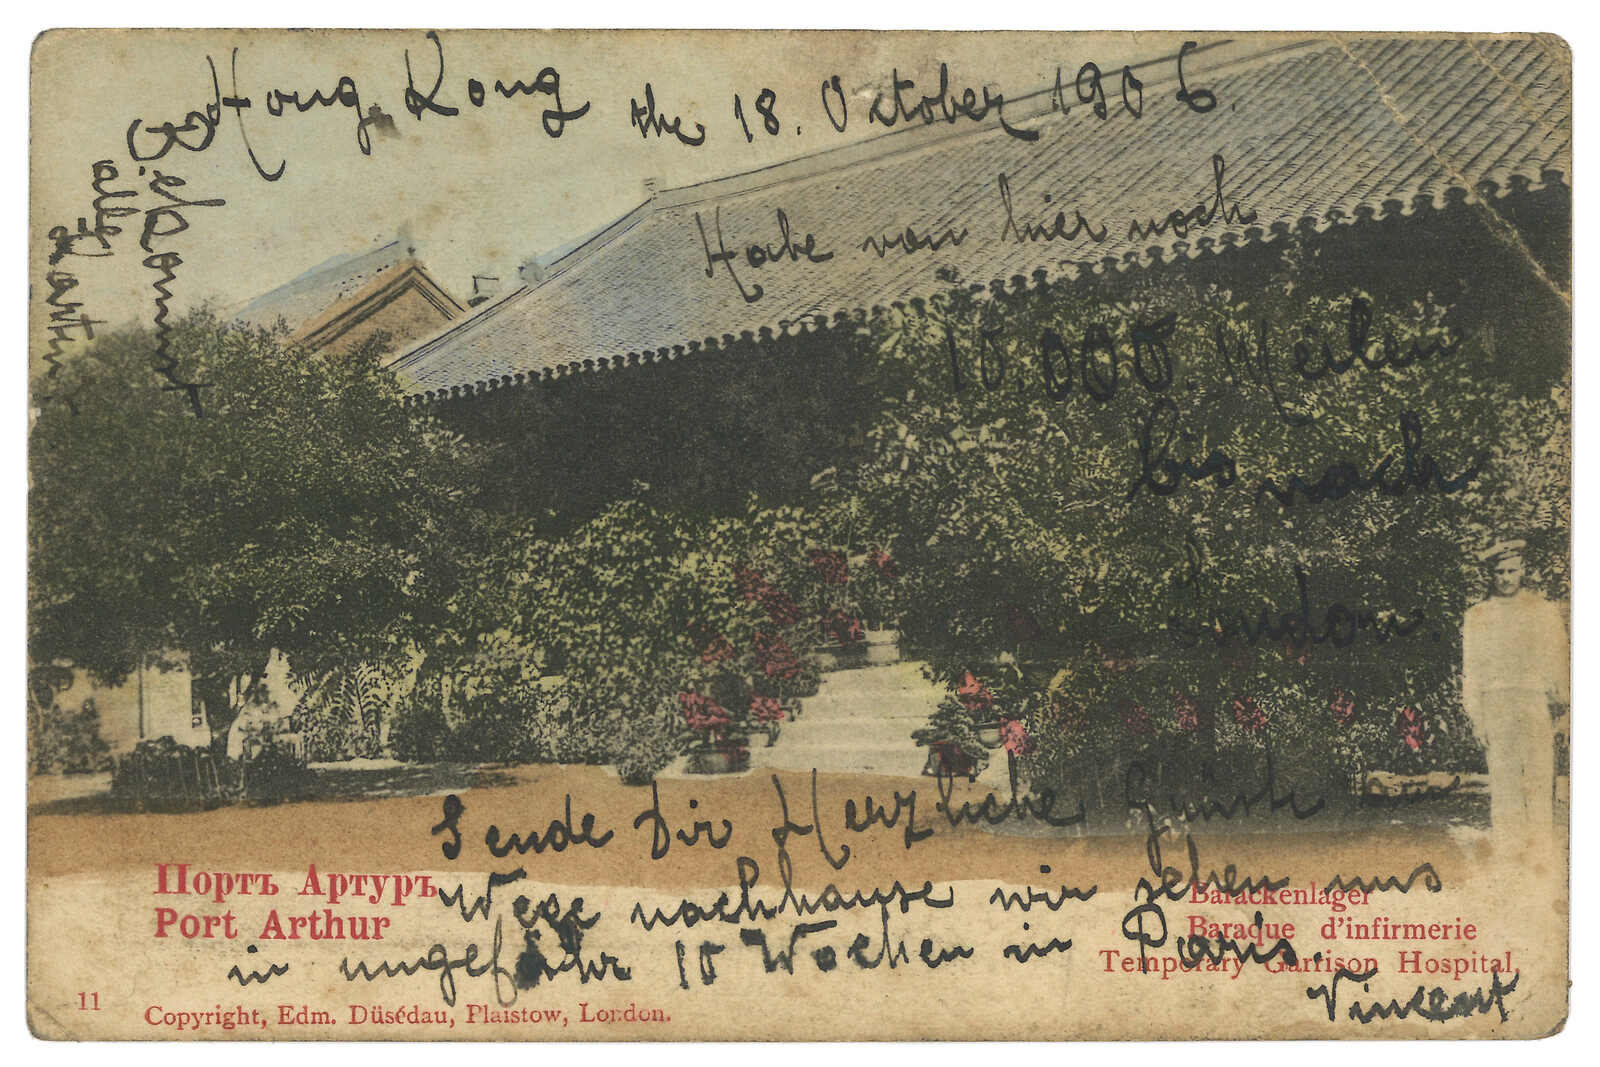 Hong Kong the 18. October 1906.
Bekommt
alle
Karten
Habe von hier noch
10.000. Meilen
bis nach
London.
Sende Dir Herzliche Grüsse am
Wege nachhause wir sehen uns
in ungefähr 10 Wochen in Paris.
Vincent
Портъ Артуръ
Port Arthur
Barackenlager
Baraque d'infirmerie
Temporary Garrison Hospital,
11
Copyright, Edm. Düsédau, Plaistow, London.